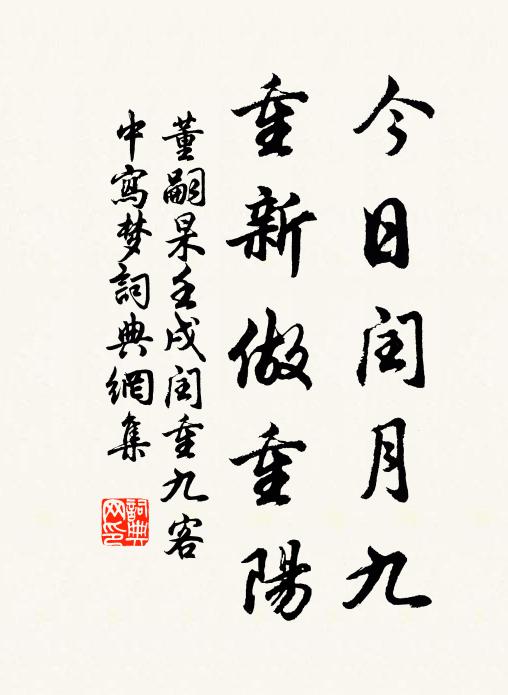 今日闰月九
重新做重陽
董嗣杲壬戌闰重九客
中寫梦詞典網集
詞典网印